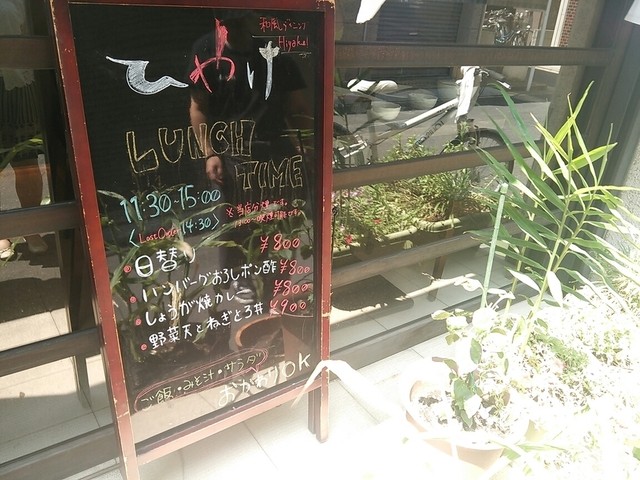 和風ダイニング
Hiyake!
ひやけ
LUNCH
TIME
11:30-15:00
<Last Order 14:30>
※当店分煙です。
日替り ¥800
ハンバーグおろしポン酢 ¥800
しょうが焼カレー ¥800
野菜天とねぎとろ丼 ¥900
ご飯・みそ汁・サラダ
おかわりOK